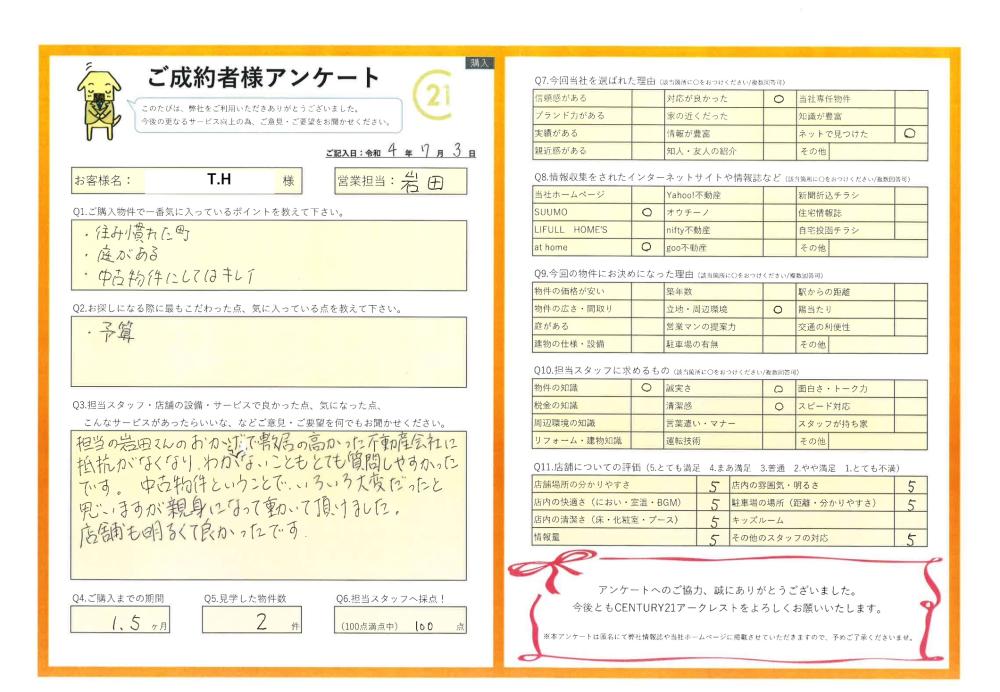 購入
ご成約者様アンケート
このたびは、弊社をご利用いただきありがとうございました。
今後の更なるサービス向上の為、ご意見・ご要望をお聞かせください。
21
ご記入日:令和 4 年 7 月 3 日
お客様名: T.H 様
営業担当: 岩田
Q1.ご購入物件で一番気に入っているポイントを教えて下さい。
・住み慣れた町
・庭がある
・中古物件にしてはキレイ
Q2.お探しになる際に最もこだわった点、気に入っている点を教えて下さい。
・予算
Q3.担当スタッフ・店舗の設備・サービスで良かった点、気になった点、
こんなサービスがあったらいいな、などご意見・ご要望を何でもお聞かせください。
担当の岩田さんのおかげで敷居の高かった不動産会社に
抵抗がなくなり、わからないこともとても質問しやすかった
です。中古物件ということで、いろいろ大変だったと
思いますが親身になって動いて頂けました。
店舗も明るくて良かったです。
Q4.ご購入までの期間
1.5 ヶ月
Q5.見学した物件数
2 件
Q6.担当スタッフへ採点!
(100点満点中) 100 点
Q7.今回当社を選ばれた理由 (該当箇所に○をおつけください/複数回答可)
信頼感がある 対応が良かった ○ 当社専任物件
ブランド力がある 家の近くだった 知識が豊富
実績がある 情報が豊富 ネットで見つけた ○
親近感がある 知人・友人の紹介 その他
Q8.情報収集をされたインターネットサイトや情報誌など (該当箇所に○をおつけください/複数回答可)
当社ホームページ Yahoo!不動産 新聞折込チラシ
SUUMO ○ オウチーノ 住宅情報誌
LIFULL HOME'S nifty不動産 自宅投函チラシ
at home ○ goo不動産 その他
Q9.今回の物件にお決めになった理由 (該当箇所に○をおつけください/複数回答可)
物件の価格が安い 築年数 駅からの距離
物件の広さ・間取り 立地・周辺環境 ○ 陽当たり
庭がある 営業マンの提案力 交通の利便性
建物の仕様・設備 駐車場の有無 その他
Q10.担当スタッフに求めるもの (該当箇所に○をおつけください/複数回答可)
物件の知識 ○ 誠実さ ○ 面白さ・トーク力
税金の知識 清潔感 ○ スピード対応
周辺環境の知識 言葉遣い・マナー スタッフが持ち家
リフォーム・建物知識 運転技術 その他
Q11.店舗についての評価 (5.とても満足 4.まあ満足 3.普通 2.やや満足 1.とても不満)
店舗場所の分かりやすさ 5 店内の雰囲気・明るさ 5
店内の快適さ(におい・室温・BGM) 5 駐車場の場所(距離・分かりやすさ) 5
店内の清潔さ(床・化粧室・ブース) 5 キッズルーム
情報量 5 その他のスタッフの対応 5
アンケートへのご協力、誠にありがとうございました。
今後ともCENTURY21アークレストをよろしくお願いいたします。
※本アンケートは匿名にて弊社情報誌や当社ホームページに掲載させていただきますので、予めご了承くださいませ。